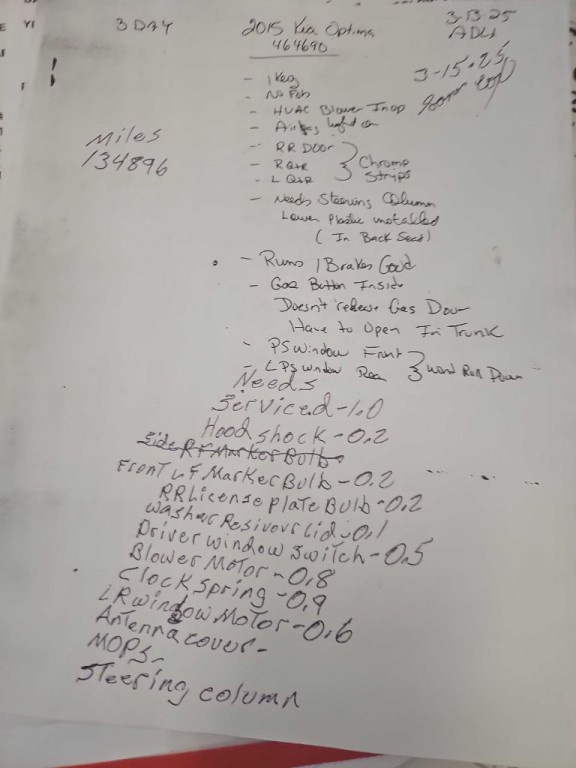 3 DAY
2015 Kia Optima
464690
3-13-25
ADU
3-15-25
Miles
134896
- 1 Key
- No Fob
- HVAC Blower Inop
- Airbag light on
- RR Door
- RQtr
- LQtr
Chrome
Strips
- Needs Steering Column
Lower Plastic installed
(In Back Seat)
- Runs / Brakes Good
- Gas Button Inside
Doesn't release Gas Door
Have to Open In Trunk
- PS Window Front
- LPS Window Rear
Wont Roll Down
Needs
Serviced-1.0
Hood shock-0.2
Side RF Marker Bulb
Front LF Marker Bulb-0.2
RR License plate Bulb-0.2
Washer Resivour Lid-0.1
Driver window switch-0.5
Blower Motor-0.8
Clock Spring-0.9
LR window Motor-0.6
Antenna cover-
MOPS-
Steering column